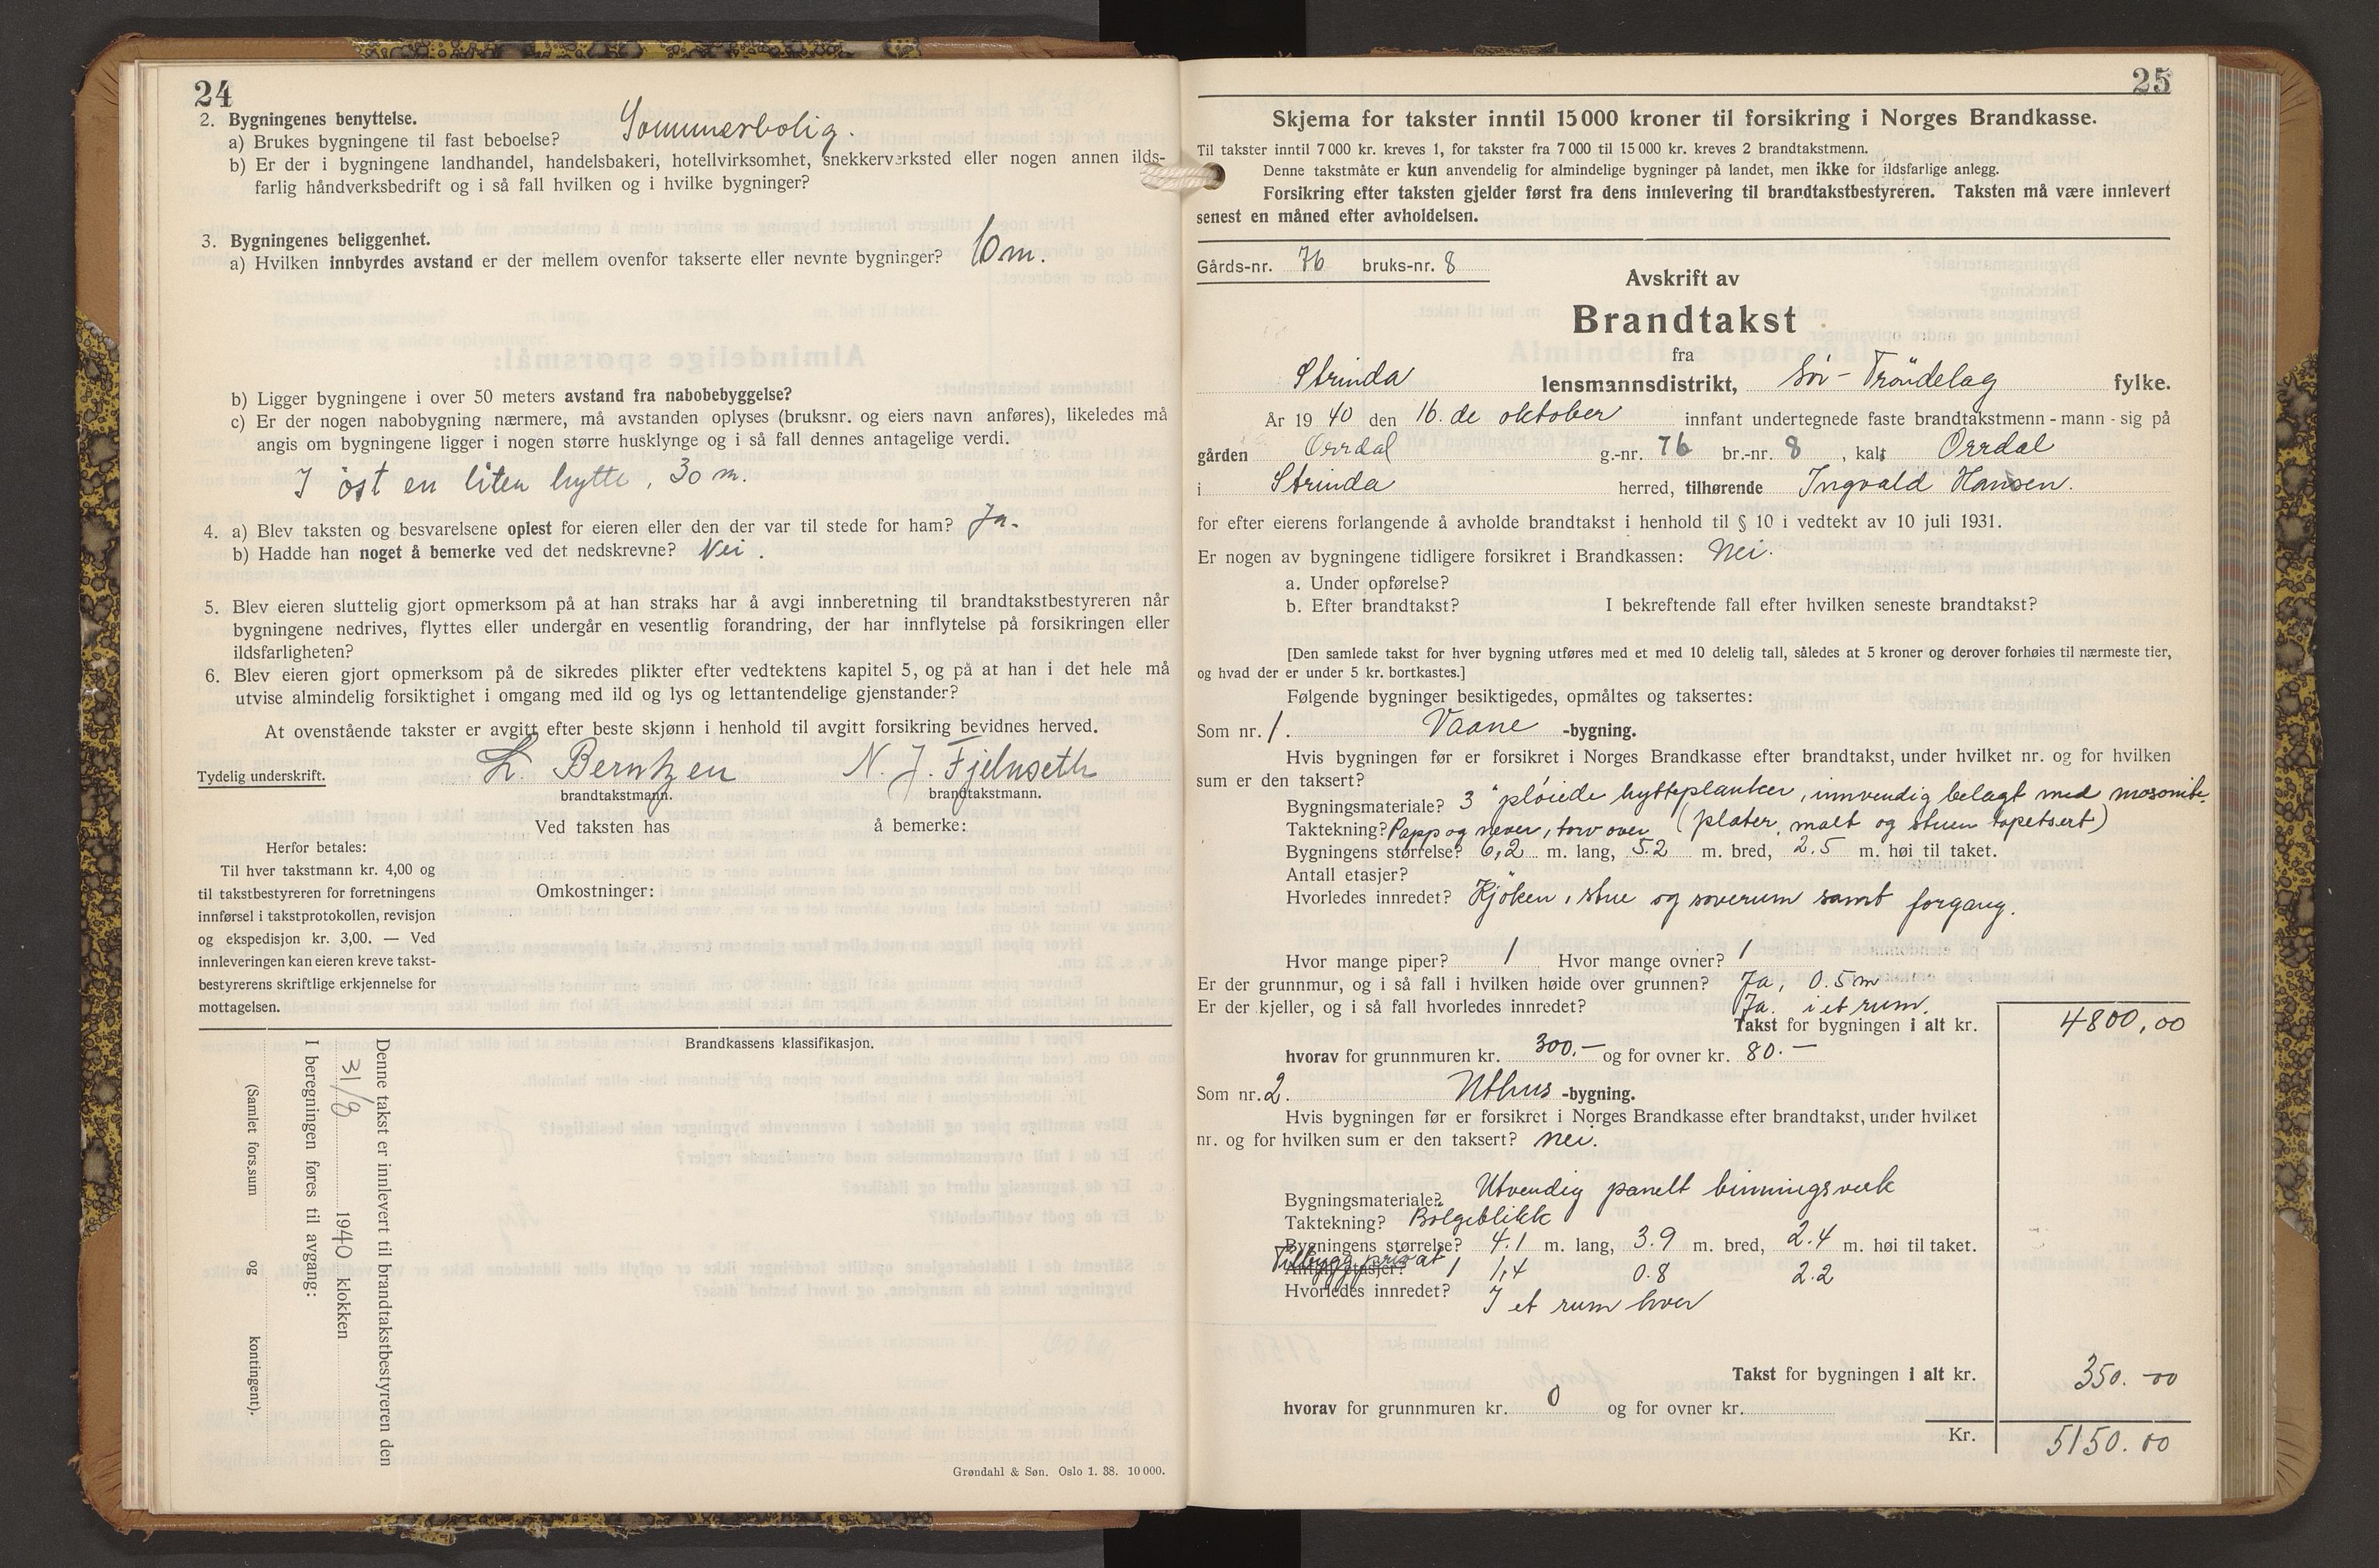 24
2. Bygningenes benyttelse.
a) Brukes bygningene til fast beboelse? Sommerbolig.
b) Er der i bygningene landhandel, handelsbakeri, hotellvirksomhet, snekkerverksted eller nogen annen ilds-
farlig håndverksbedrift og i så fall hvilken og i hvilke bygninger?
3. Bygningenes beliggenhet.
a) Hvilken innbyrdes avstand er der mellem ovenfor takserte eller nevnte bygninger? 10 m.
b) Ligger bygningene i over 50 meters avstand fra nabobebyggelse?
c) Er der nogen nabobygning nærmere, må avstanden oplyses (bruksnr. og eiers navn anføres), likeledes må
angis om bygningene ligger i nogen større husklynge og i så fall dennes antagelige verdi.
I öst en liten hytte, 30 m.
4. a) Blev taksten og besvarelsene oplest for eieren eller den der var til stede for ham? Ja.
b) Hadde han noget å bemerke ved det nedskrevne? Nei.
5. Blev eieren sluttelig gjort opmerksom på at han straks har å avgi innberetning til brandtakstbestyreren når
bygningene nedrives, flyttes eller undergår en vesentlig forandring, der har innflytelse på forsikringen eller
ildsfarligheten?
6. Blev eieren gjort opmerksom på de sikredes plikter efter vedtektens kapitel 5, og på at han i det hele må
utvise almindelig forsiktighet i omgang med ild og lys og lettantendelige gjenstander?
At ovenstående takster er avgitt efter beste skjønn i henhold til avgitt forsikring bevidnes herved.
Tydelig underskrift. L. Berntzen N. J. Fjelnseth
brandtakstmann. brandtakstmann.
Ved taksten has å bemerke:
Herfor betales:
Til hver takstmann kr. 4,00 og
til takstbestyreren for forretningens
innførsel i takstprotokollen, revisjon
og ekspedisjon kr. 3,00. — Ved
innleveringen kan eieren kreve takst-
bestyrerens skriftlige erkjennelse for
mottagelsen.
Omkostninger:
Brandkassens klassifikasjon.
Denne takst er innlevert til brandtakstbestyreren den
31/8 1940 klokken
I beregningen føres til avgang:
(Samlet fors.sum og kontingent).
Grøndahl & Søn. Oslo 1. 38. 10 000.
25
Skjema for takster inntil 15 000 kroner til forsikring i Norges Brandkasse.
Til takster inntil 7 000 kr. kreves 1, for takster fra 7 000 til 15 000 kr. kreves 2 brandtakstmenn.
Denne takstmåte er kun anvendelig for almindelige bygninger på landet, men ikke for ildsfarlige anlegg.
Forsikring efter taksten gjelder først fra dens innlevering til brandtakstbestyreren. Taksten må være innlevert
senest en måned efter avholdelsen.
Gårds-nr. 76 bruks-nr. 8
Avskrift av
Brandtakst
fra
Strinda lensmannsdistrikt, Sör-Tröndelag fylke.
År 1940 den 16. de oktober innfant undertegnede faste brandtakstmenn - mann - sig på
gården Orrdal g.-nr. 76 br.-nr. 8, kalt Orrdal
i Strinda herred, tilhørende Ingvald Hansen.
for efter eierens forlangende å avholde brandtakst i henhold til § 10 i vedtekt av 10 juli 1931.
Er nogen av bygningene tidligere forsikret i Brandkassen: Nei.
a. Under opførelse?
b. Efter brandtakst? I bekreftende fall efter hvilken seneste brandtakst?
[Den samlede takst for hver bygning utføres med et med 10 delelig tall, således at 5 kroner og derover forhøies til nærmeste tier,
og hvad der er under 5 kr. bortkastes.]
Følgende bygninger besiktigedes, opmåltes og taksertes:
Som nr. 1. Vaane -bygning.
Hvis bygningen før er forsikret i Norges Brandkasse efter brandtakst, under hvilket nr. og for hvilken
sum er den taksert?
Bygningsmateriale? 3" plöiede hytteplanker, innvendig belagt med masonite.
Taktekning? Papp og never, torv over (plater, malt og stuen tapetsert)
Bygningens størrelse? 6,2 m. lang, 5.2 m. bred, 2.5 m. høi til taket.
Antall etasjer?
Hvorledes innredet? Kjöken, stue og soverum samt forgang.
Hvor mange piper? 1 Hvor mange ovner? 1
Er der grunnmur, og i så fall i hvilken høide over grunnen? Ja, 0.5 m
Er der kjeller, og i så fall hvorledes innredet? Ja. i et rum.
Takst for bygningen i alt kr. 4800,00
hvorav for grunnmuren kr. 300.— og for ovner kr. 80.—
Som nr. 2. Uthus -bygning.
Hvis bygningen før er forsikret i Norges Brandkasse efter brandtakst, under hvilket
nr. og for hvilken sum er den taksert? nei.
Bygningsmateriale? Utvendig panelt binningsverk
Taktekning? Bölgeblikk
Bygningens størrelse? 4.1 m. lang, 3.9 m. bred, 2.4 m. høi til taket.
Tilbygg privat
Antall etasjer? 1 1,4 0.8 2.2
Hvorledes innredet? I et rum hver
Takst for bygningen i alt kr. 350.-00
hvorav for grunnmuren kr. 0 og for ovner kr.
Kr. 5150.00